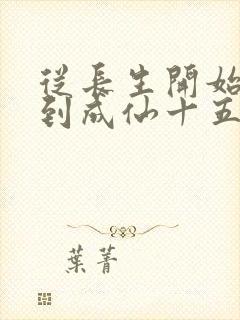 從長生開始
到成仙十五
葉菁